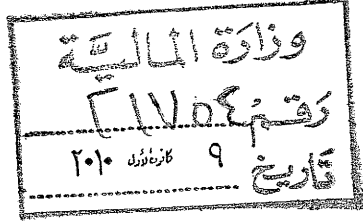 وزارة المالية
رقم ٢١٧٥٤
تاريخ ٩ كانون الأول ٢٠١٠